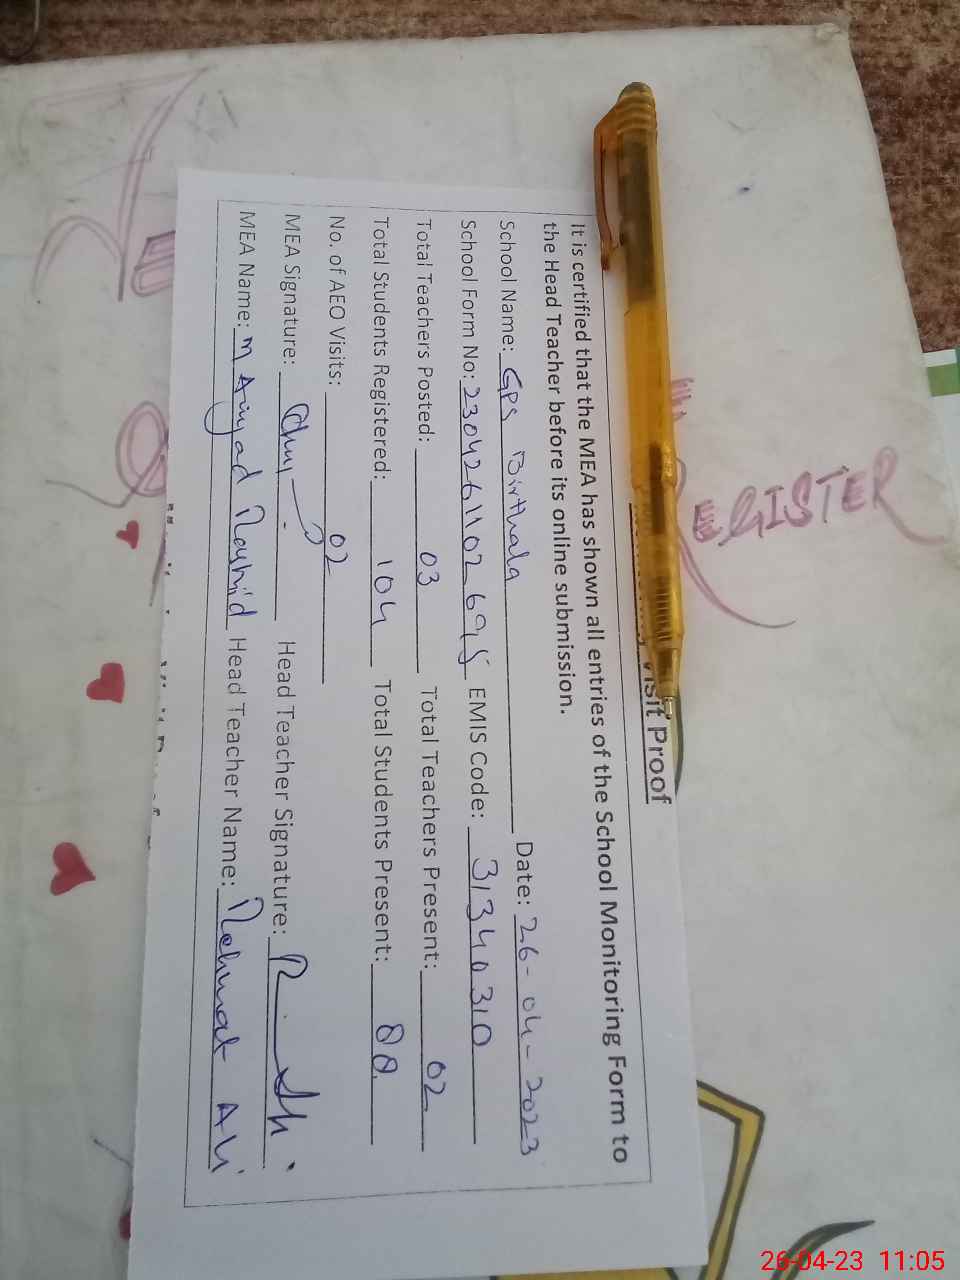 Visit Proof
It is certified that the MEA has shown all entries of the School Monitoring Form to
the Head Teacher before its online submission.
School Name: GPS Birthala Date: 26-04-2023
School Form No: 2304261102695 EMIS Code: 31340310
Total Teachers Posted: 03 Total Teachers Present: 02
Total Students Registered: 104 Total Students Present: 88
No. of AEO Visits: 02
MEA Signature: Head Teacher Signature:
MEA Name: M Amjad Rashid Head Teacher Name: Rehmat Ali
REGISTER
26-04-23 11:05